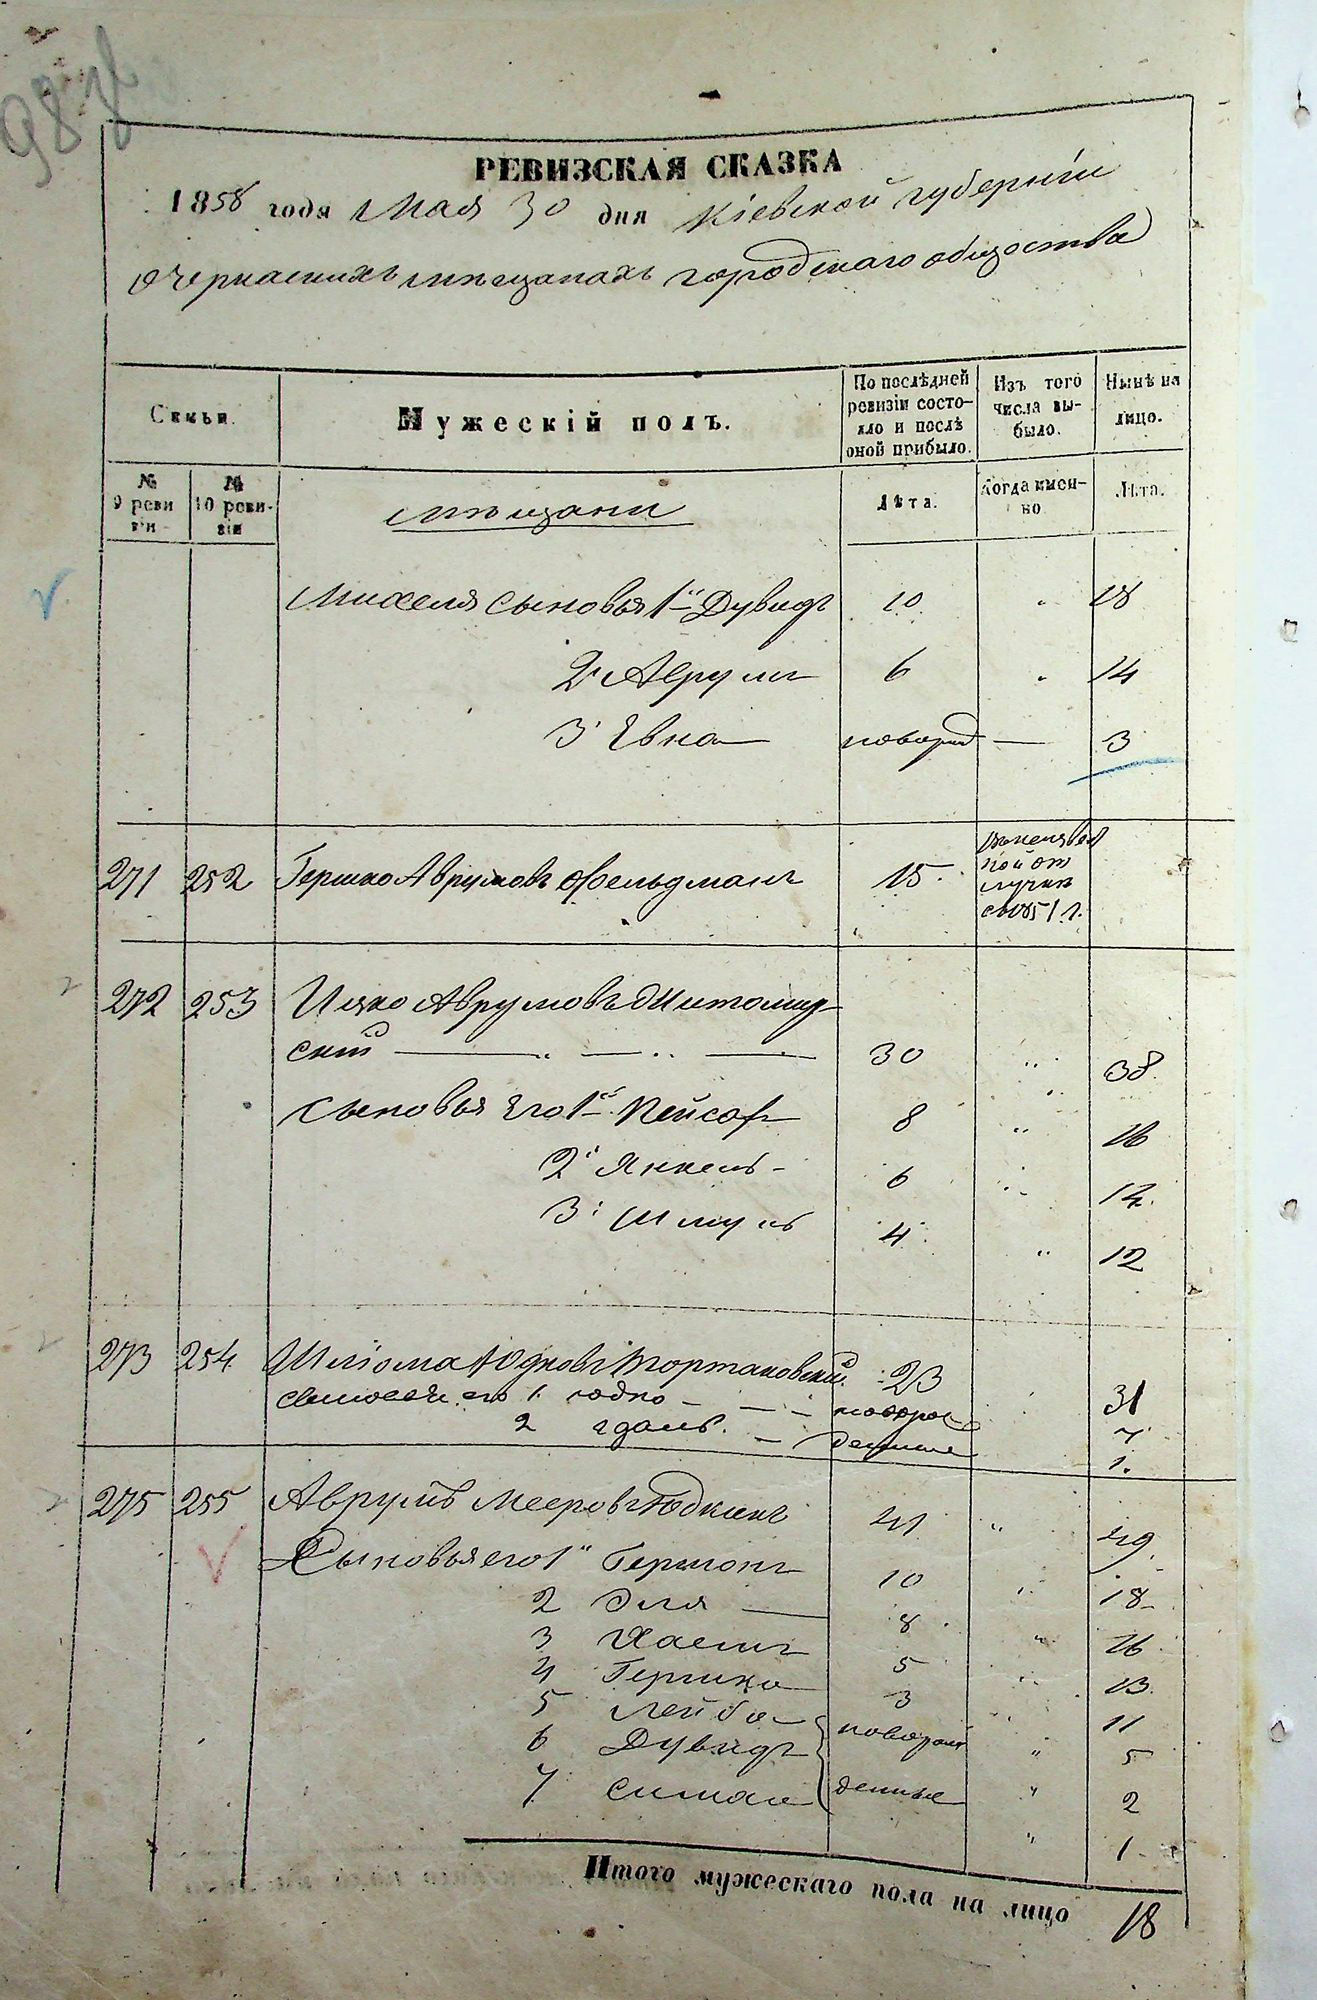 РЕВИЗСКАЯ СКАЗКА
1858 года Мая 30 дня Кіевской губерніи
о Черкаскихъ мѣщанахъ городскаго общества
Семьи.
Мужескій полъ.
По послѣдней ревизіи состояло и послѣ оной прибыло.
Изъ того числа выбыло.
Нынѣ на лицо.
№ 9 ревизіи
№ 10 ревизіи
мѣщани
Лѣта.
Когда именно
Лѣта.
Михеля сыновья 1й Дувидъ 10 " 18
2й Аврумъ 6 " 14
3й Евна новород — 3
271 252 Гершко Аврумовъ Фельдманъ 15 отлучкѣ съ 1851 г.
272 253 Ицко Аврумовъ Житомирский 30 " 38
Сыновья его 1й Пейсахъ 8 " 16
2й Янкель 6 " 14
3й Шмуль 4 " 12
273 254 Шлиома Юдковъ Тортаковский 23 " 31
Сыновья его 1 Юдко новорож 7
2 денные 1.
275 255 Аврумъ Мееровъ Юдкинъ 41 " 49.
Сыновья его 1й Гершонъ 10 " 18
2 Эля 8 " 16
3 Хаимъ 5 " 13
4 Гершко 3 " 11
5 Лейба новорож " 5
6 Дувидъ " 2
7 Симха денные " 1
Итого мужескаго пола на лицо 18